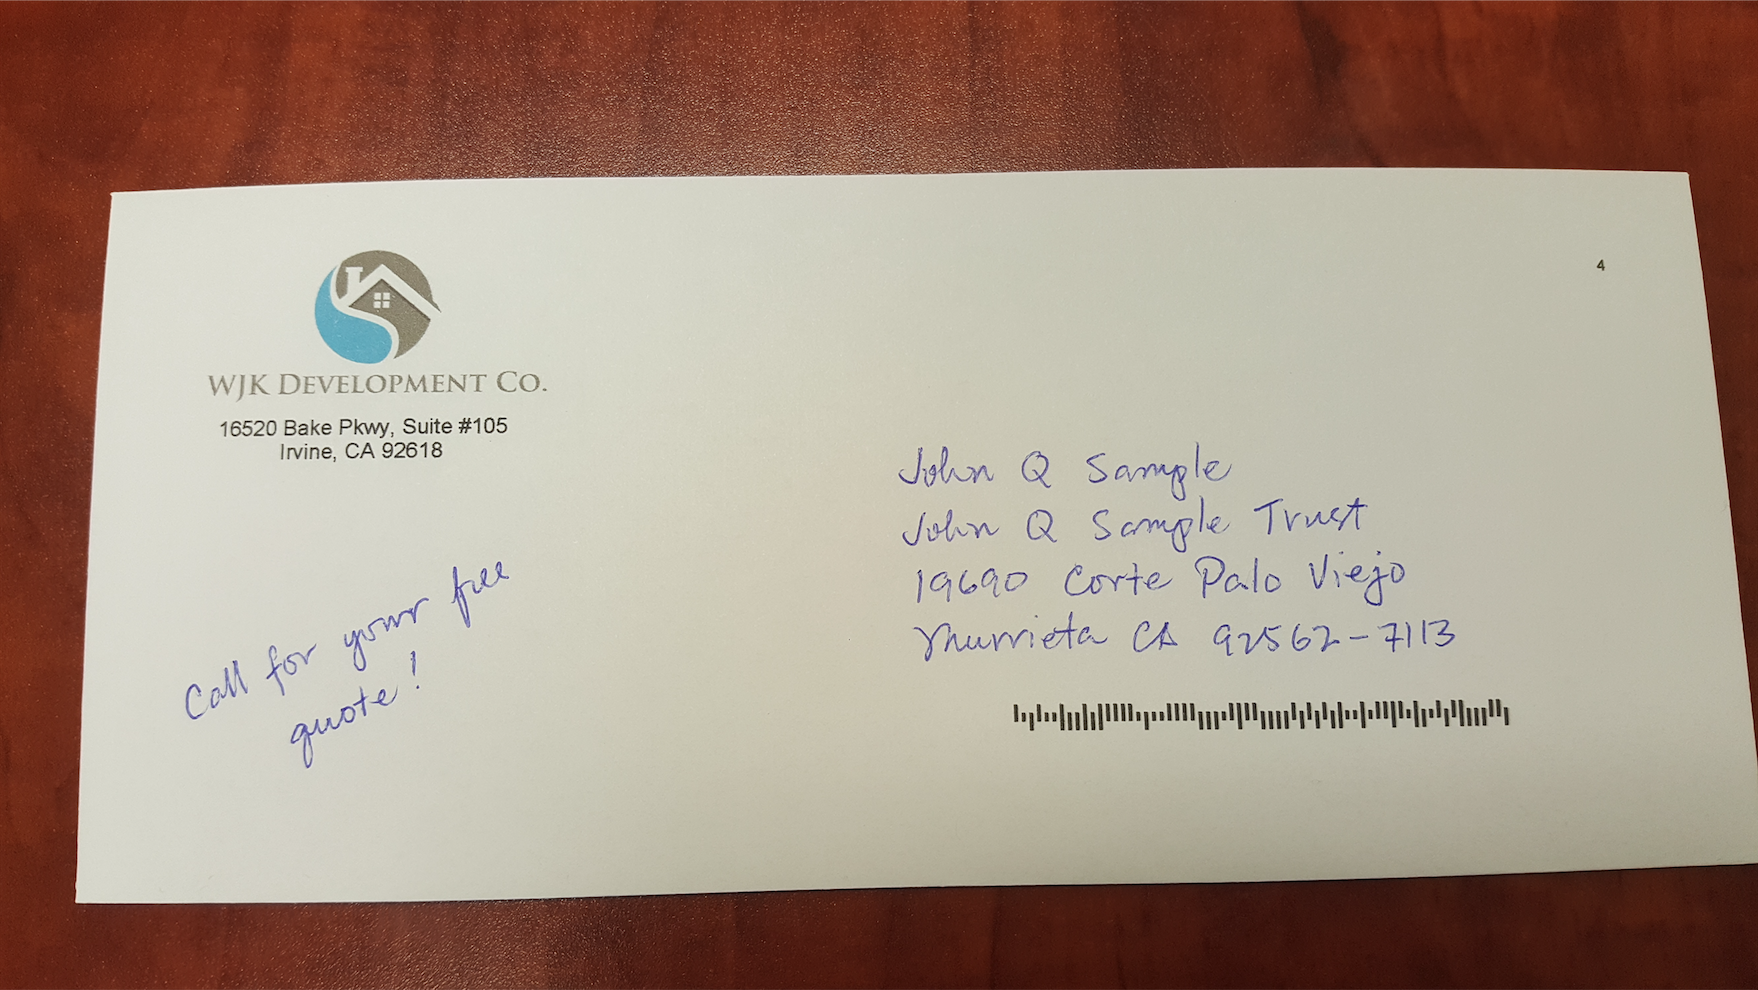 WJK DEVELOPMENT CO.
16520 Bake Pkwy, Suite #105
Irvine, CA 92618
4
John Q Sample
John Q Sample Trust
19690 Corte Palo Viejo
Murrieta CA 92562-7113
Call for your free
quote!